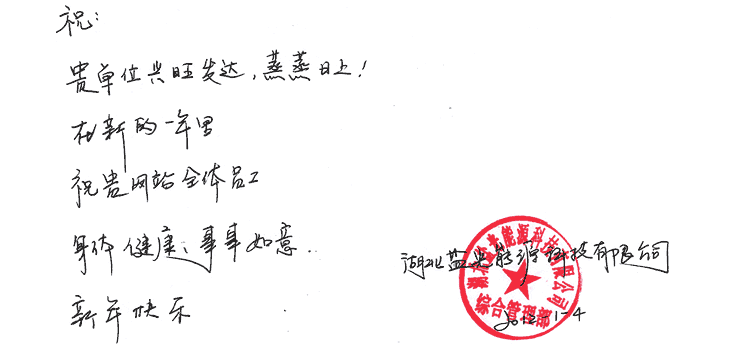 祝:
贵单位兴旺发达,蒸蒸日上!
在新的一年里
祝贵网站全体员工
身体健康、事事如意..
新年快乐
湖北蓝光能源科技有限公司
湖北蓝光能源科技有限公司
综合管理部
2012-1-4